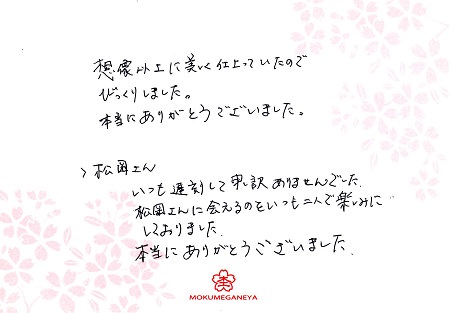 想像以上に美しく仕上っていたので
びっくりしました。
本当にありがとうございました。
>松岡さん
いつも遅刻して申し訳ありませんでした.
松岡さんに会えるのをいつも二人で楽しみに
しておりました.
本当にありがとうございました.
MOKUMEGANEYA